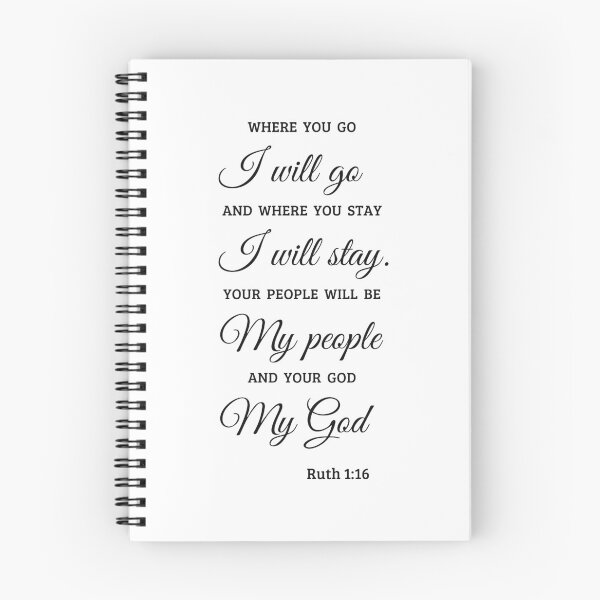 WHERE YOU GO
I will go
AND WHERE YOU STAY
I will stay.
YOUR PEOPLE WILL BE
My people
AND YOUR GOD
My God
Ruth 1:16